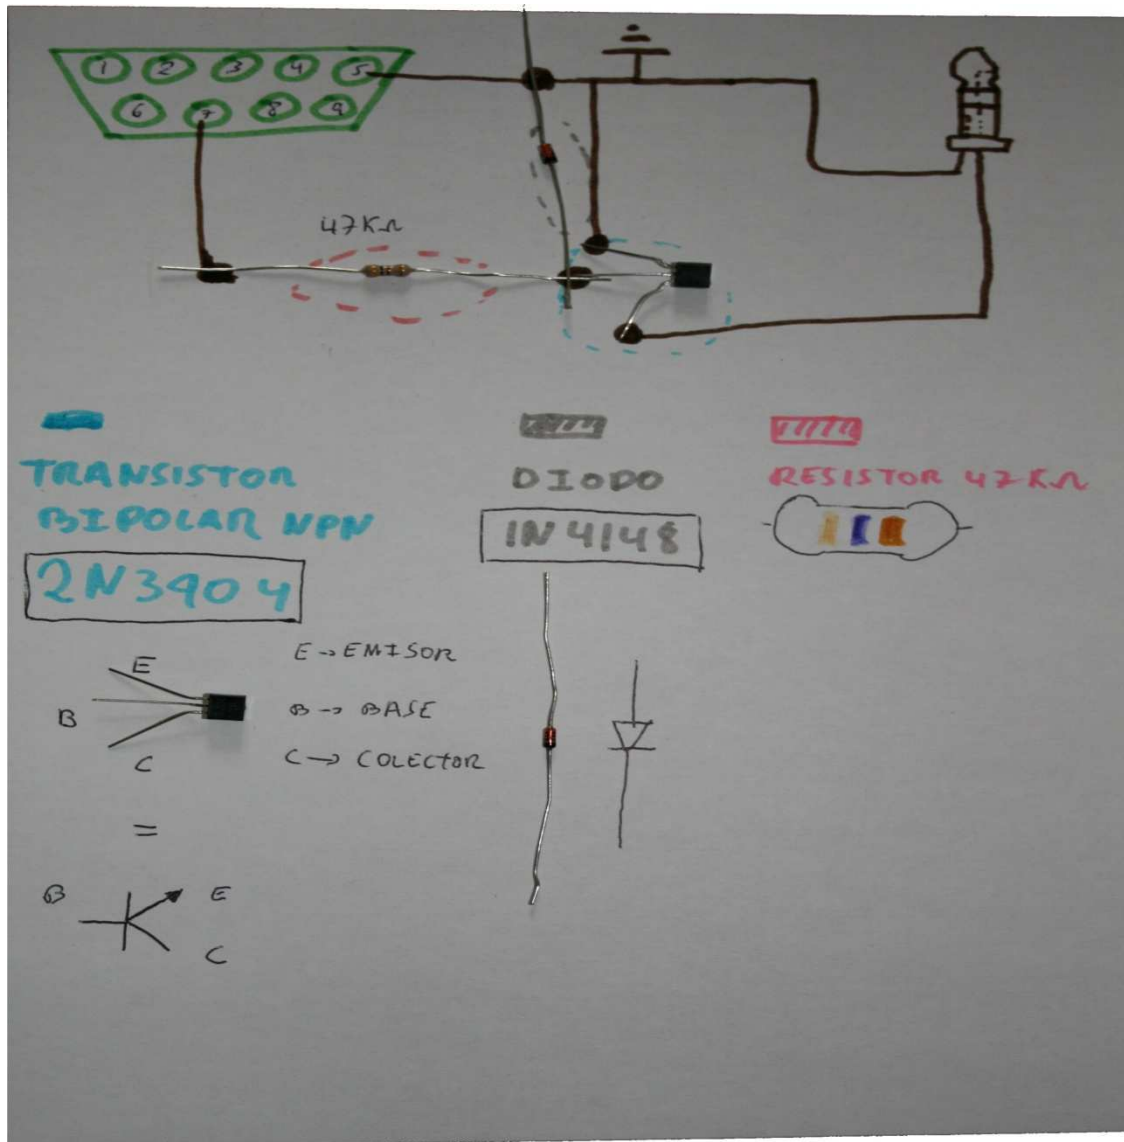 1 2 3 4 5
6 7 8 9
47KΩ
TRANSISTOR
BIPOLAR NPN
2N3904
E
B
C
E → EMISOR
B → BASE
C → COLECTOR
=
B
E
C
DIODO
1N4148
RESISTOR 47KΩ